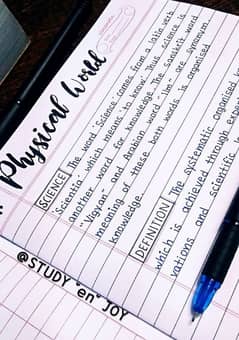 Physical World
SCIENCE The word 'Science' comes from a latin verb
'Scientia' which means 'to know'. Thus science is
another word for knowledge. The sanskrit word
"Vigyan" and Arabian word "Ilm" are synonym
meaning of these both words is organised
knowledge.
DEFINITION The systematic organised k
which is achieved through experi
vations and scientific
@STUDY "en" JOY